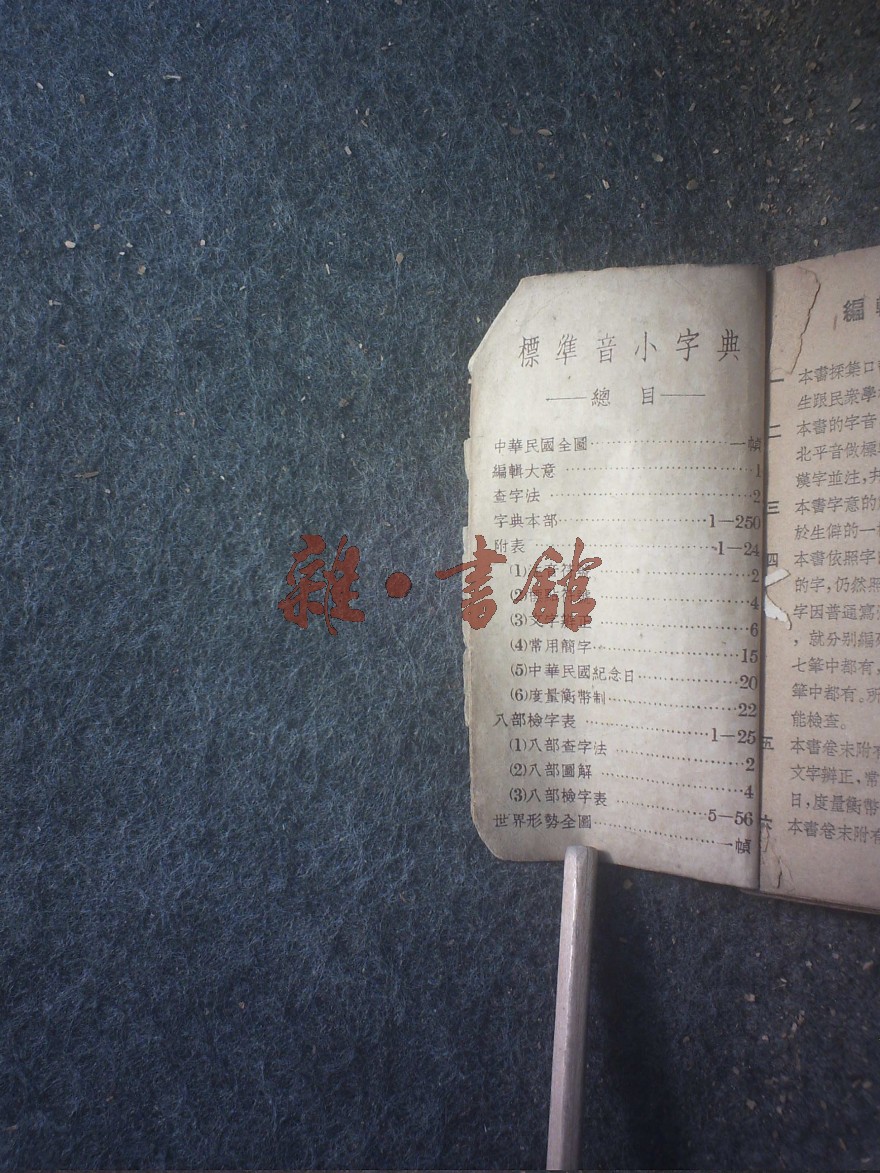 標準音小字典
總 目
中華民國全圖 一幀
編輯大意 1
查字法 2
字典本部 1—250
附表 1—24
(1) 2
(2) 4
(3)文字辨正 6
(4)常用簡字 15
(5)中華民國紀念日 20
(6)度量衡幣制 22
八部檢字表 1—25
(1)八部查字法 2
(2)八部圖解 4
(3)八部檢字表 5—56
世界形勢全圖 一幀
編
一 本書採集口
生跟民衆學
二 本書的字音
北平音做標
漢字並注,
三 本書字意的
於生僻的一
四 本書依照字
的字,仍然照
字因普通寫
,就分別編
七筆中都有,
筆中都有。所
能檢查。
五 本書卷末附有
文字辨正,常
日,度量衡幣
六 本書卷末附有
雜·書館